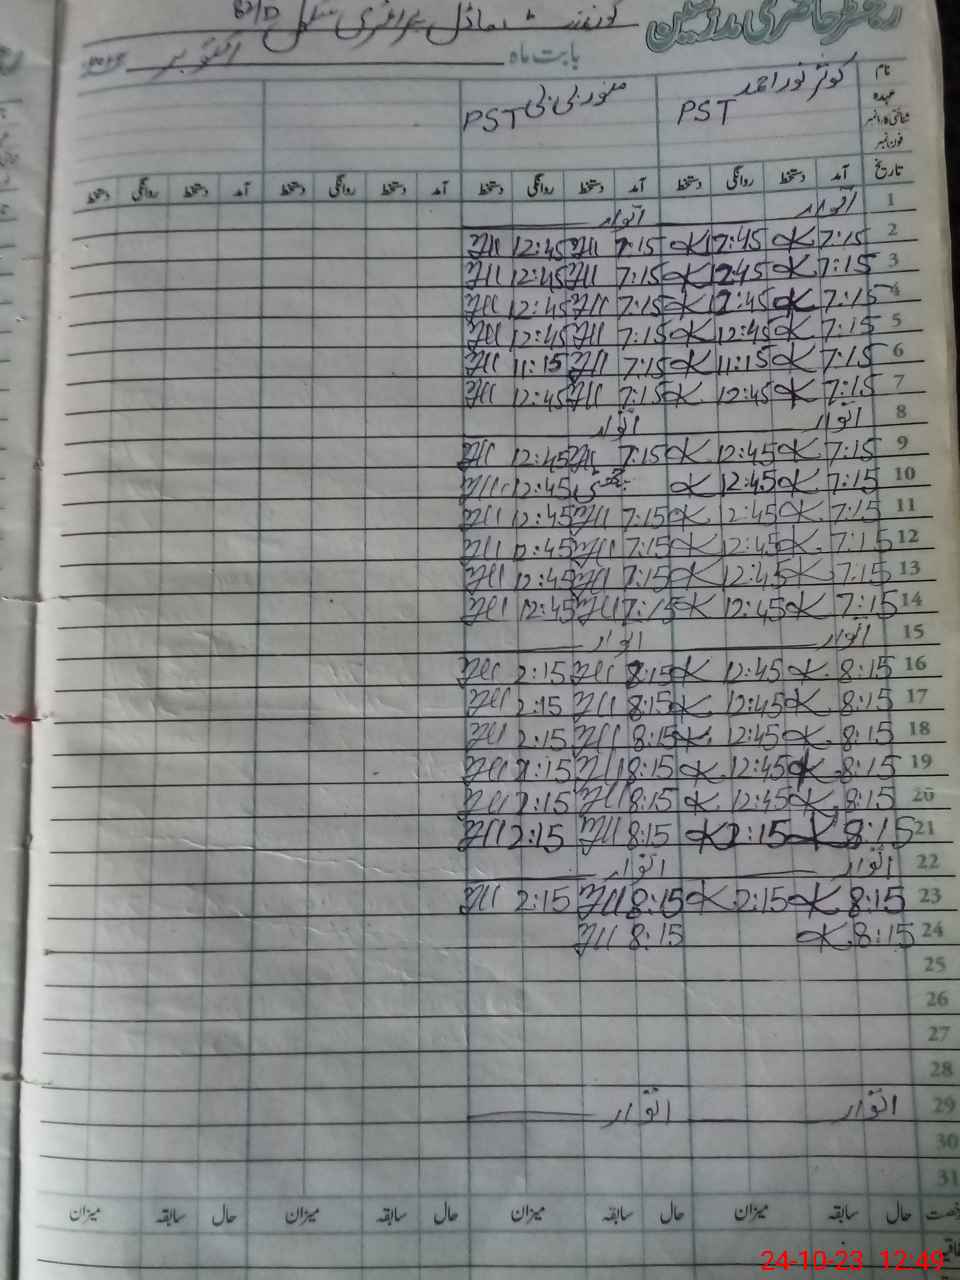 رجسٹر حاضری مدرسین
گورنمنٹ ماڈل پرائمری سکول
بابت ماہ اکتوبر
نام کوثر نور احمد منور بی بی
عہدہ PST PST
شناختی کارڈ نمبر
فون نمبر
تاریخ آمد دستخط روانگی دستخط آمد دستخط روانگی دستخط آمد دستخط روانگی دستخط آمد دستخط روانگی دستخط
1 اتوار اتوار
2 7:15 K 12:45 K 7:15 12:45
3 7:15 K 12:45 K 7:15 12:45
4 7:15 K 12:45 K 7:15 12:45
5 7:15 K 12:45 K 7:15 12:45
6 7:15 K 11:15 K 7:15 11:15
7 7:15 K 12:45 K 7:15 12:45
8 اتوار اتوار
9 7:15 K 12:45 K 7:15 12:45
10 7:15 K 12:45 K 12:45
11 7:15 K 12:45 K 7:15 12:45
12 7:15 K 12:45 K 7:15 12:45
13 7:15 K 12:45 K 7:15 12:45
14 7:15 K 12:45 K 7:15 12:45
15 اتوار اتوار
16 8:15 K 12:45 K 8:15 2:15
17 8:15 K 12:45 K 8:15 2:15
18 8:15 K 12:45 K 8:15 2:15
19 8:15 K 12:45 K 8:15 2:15
20 8:15 K 12:45 K 8:15 2:15
21 8:15 K 2:15 K 8:15 2:15
22 اتوار اتوار
23 8:15 K 2:15 K 8:15 2:15
24 8:15 K 8:15
25
26
27
28
29 اتوار اتوار
30
31
حال سابقہ میزان حال سابقہ میزان حال سابقہ میزان حال سابقہ میزان
24-10-23 12:49